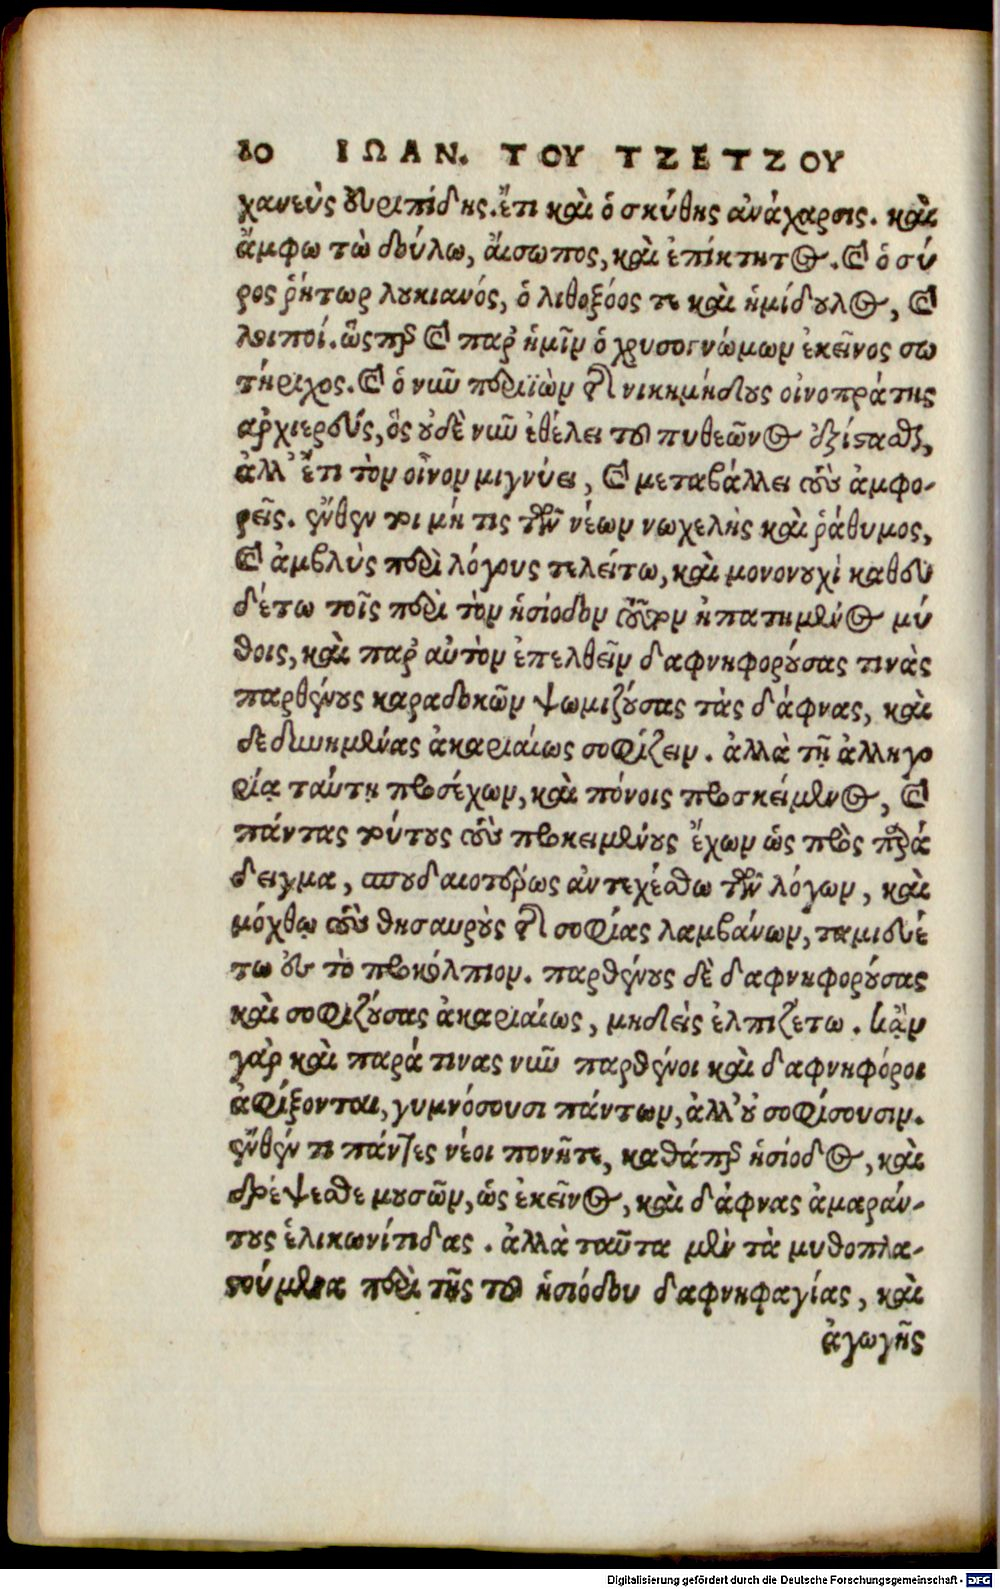 80 ΙΩΑΝ. ΤΟΥ ΤΖΕΤΖΟΥ
χανεὺς Ευριπίδης. ἔτι καὶ ὁ σκύθης ἀνάχαρσις. καὶ
ἄμφω τὼ δούλω, ἄισωπος, καὶ ἐπίκτητος. καὶ ὁ σύ
ρος ῥήτωρ λουκιανός, ὁ λιθοξόος τε καὶ ἡμίδουλος, καὶ
λοιποί. ὥσπερ καὶ παρ' ἡμῖν ὁ χρυσογνώμων ἐκεῖνος σω
τήριχος. καὶ ὁ νῦν περιϊὼν τῆς νικημήδους οἰνοπράτης
ἀρχιερεύς, ὃς οὐδὲ νῦν ἐθέλει τοῦ πυθεῶνος ἐξίστασθαι,
ἀλλ' ἔτι τὸν οἶνον μιγνύει, καὶ μεταβάλλει τοὺς ἀμφο-
ρεῖς. ἔνθεν τοι μή τις τῶν νέων νωχελὴς καὶ ῥάθυμος,
καὶ ἀμβλὺς περὶ λόγους τελείτω, καὶ μονονουχὶ καθευ
δέτω τοῖς περὶ τὸν ἡσίοδον τούτων ἠπατημένος μύ
θοις, καὶ παρ' αὐτὸν ἐπελθεῖν δαφνηφορούσας τινὰς
παρθένους καραδοκῶν ψωμιζούσας τὰς δάφνας, καὶ
δεδιωημένας ἀκαριαίως σοφίζειν. ἀλλὰ τῇ ἀλληγο
ρίᾳ ταύτῃ προσέχων, καὶ πόνοις προσκείμενος, καὶ
πάντας τούτους τοὺς προκειμένους ἔχων ὡς πρὸς παρά
δειγμα, σπουδαιοτέρως ἀντεχέσθω τῶν λόγων, καὶ
μόχθῳ τοὺς θησαυροὺς τῆς σοφίας λαμβάνων, ταμιευέ
τω εἰς τὸ προκόλπιον. παρθένους δὲ δαφνηφορούσας
καὶ σοφιζούσας ἀκαριαίως, μηδεὶς ἐλπιζέτω. κἂν
γὰρ καὶ παρά τινας νῦν παρθένοι καὶ δαφνηφόροι
ἀφίξονται, γυμνόσουσι πάντων, ἀλλ' οὐ σοφίσουσιν.
ἔνθέν τι πάντες νέοι πονῆτε, καθάπερ ἡσίοδος, καὶ
δρέψεσθε μουσῶν, ὡς ἐκεῖνος, καὶ δάφνας ἀμαράν-
τους ἑλικωνίτιδας. ἀλλὰ ταῦτα μὲν τὰ μυθοπλα-
στούμενα περὶ τῆς τοῦ ἡσιόδου δαφνηφαγίας, καὶ
ἀγωγῆς
Digitalisierung gefördert durch die Deutsche Forschungsgemeinschaft - DFG